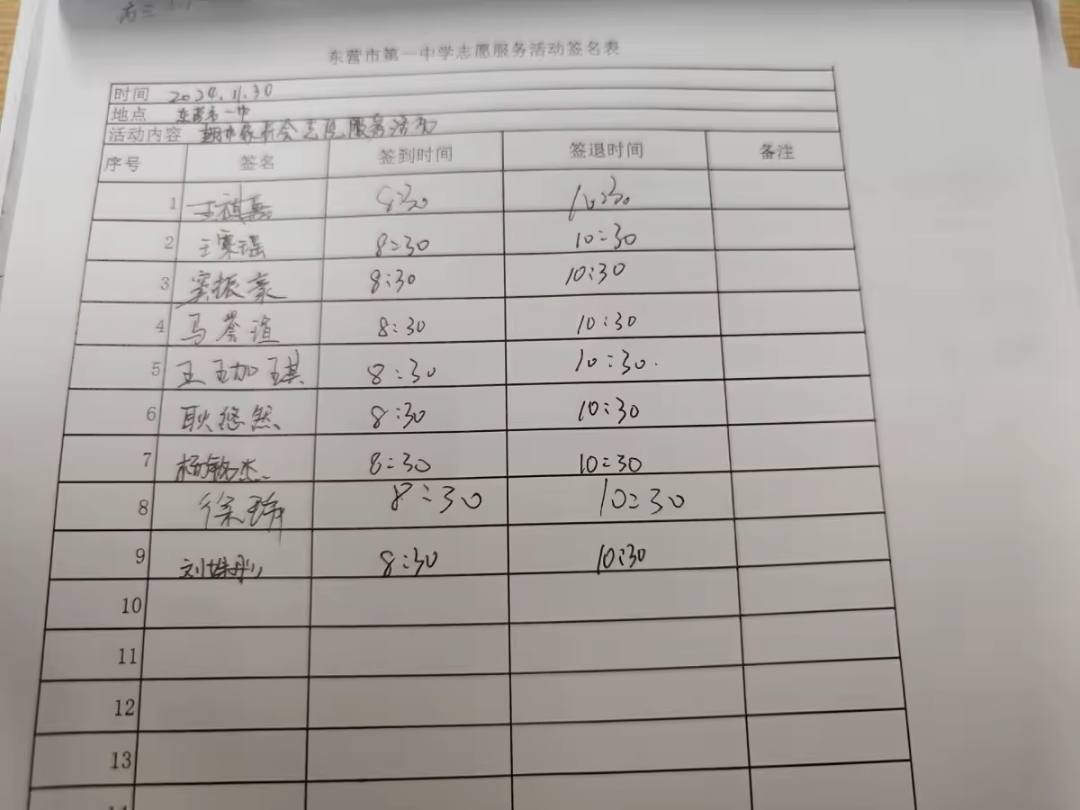 高三
东营市第一中学志愿服务活动签名表
时间 2024.11.30
地点 东营市一中
活动内容 期中家长会志愿服务活动
序号 签名 签到时间 签退时间 备注
1 王祺 8:30 10:30
2 王寒瑶 8:30 10:30
3 窦振豪 8:30 10:30
4 马誉瑄 8:30 10:30
5 王珈琪 8:30 10:30.
6 耿悠然 8:30 10:30
7 杨敏杰 8:30 10:30
8 徐玮 8:30 10:30
9 刘姝彤 8:30 10:30
10
11
12
13
14